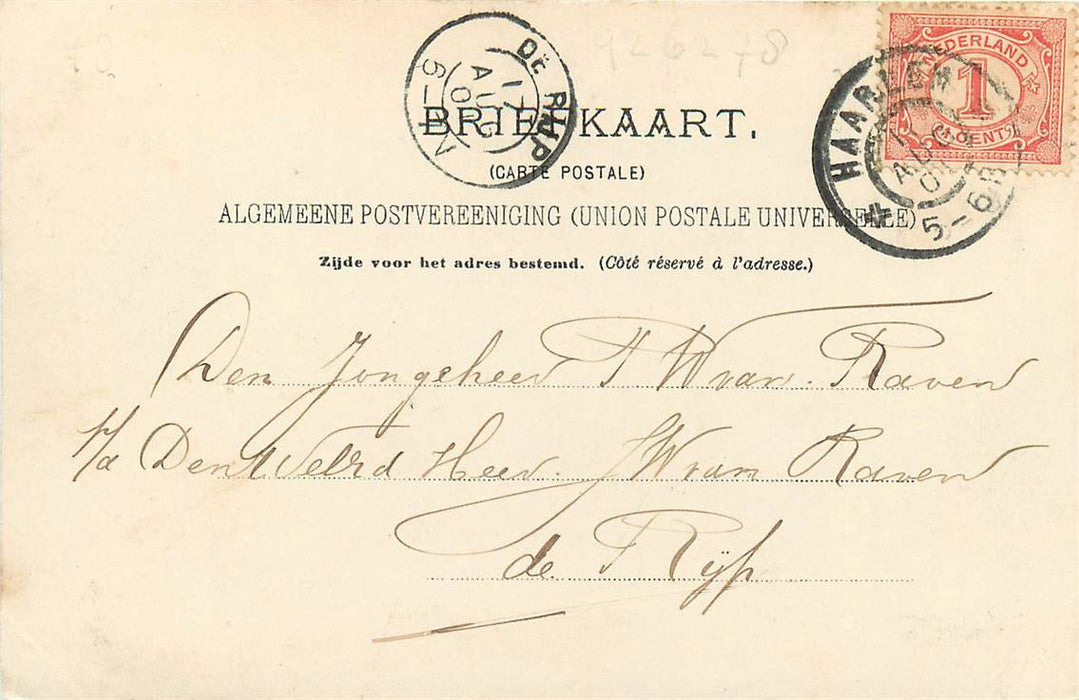 926278
DE RIJP
17 AUG 01
6-7 N
NEDERLAND
1
CENT
HAARLEM
17 AUG 01
5-6
BRIEFKAART.
(CARTE POSTALE)
ALGEMEENE POSTVEREENIGING (UNION POSTALE UNIVERSELLE)
Zijde voor het adres bestemd. (Côté réservé à l'adresse.)
Den Jongeheer W van Raven
p/a Den Weled Heer W van Raven
de Rijp